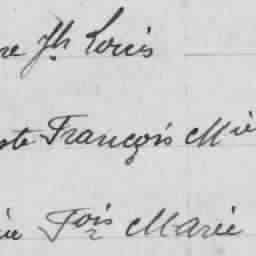 re Jh Louis
ste François Mie
rie Fois Marie